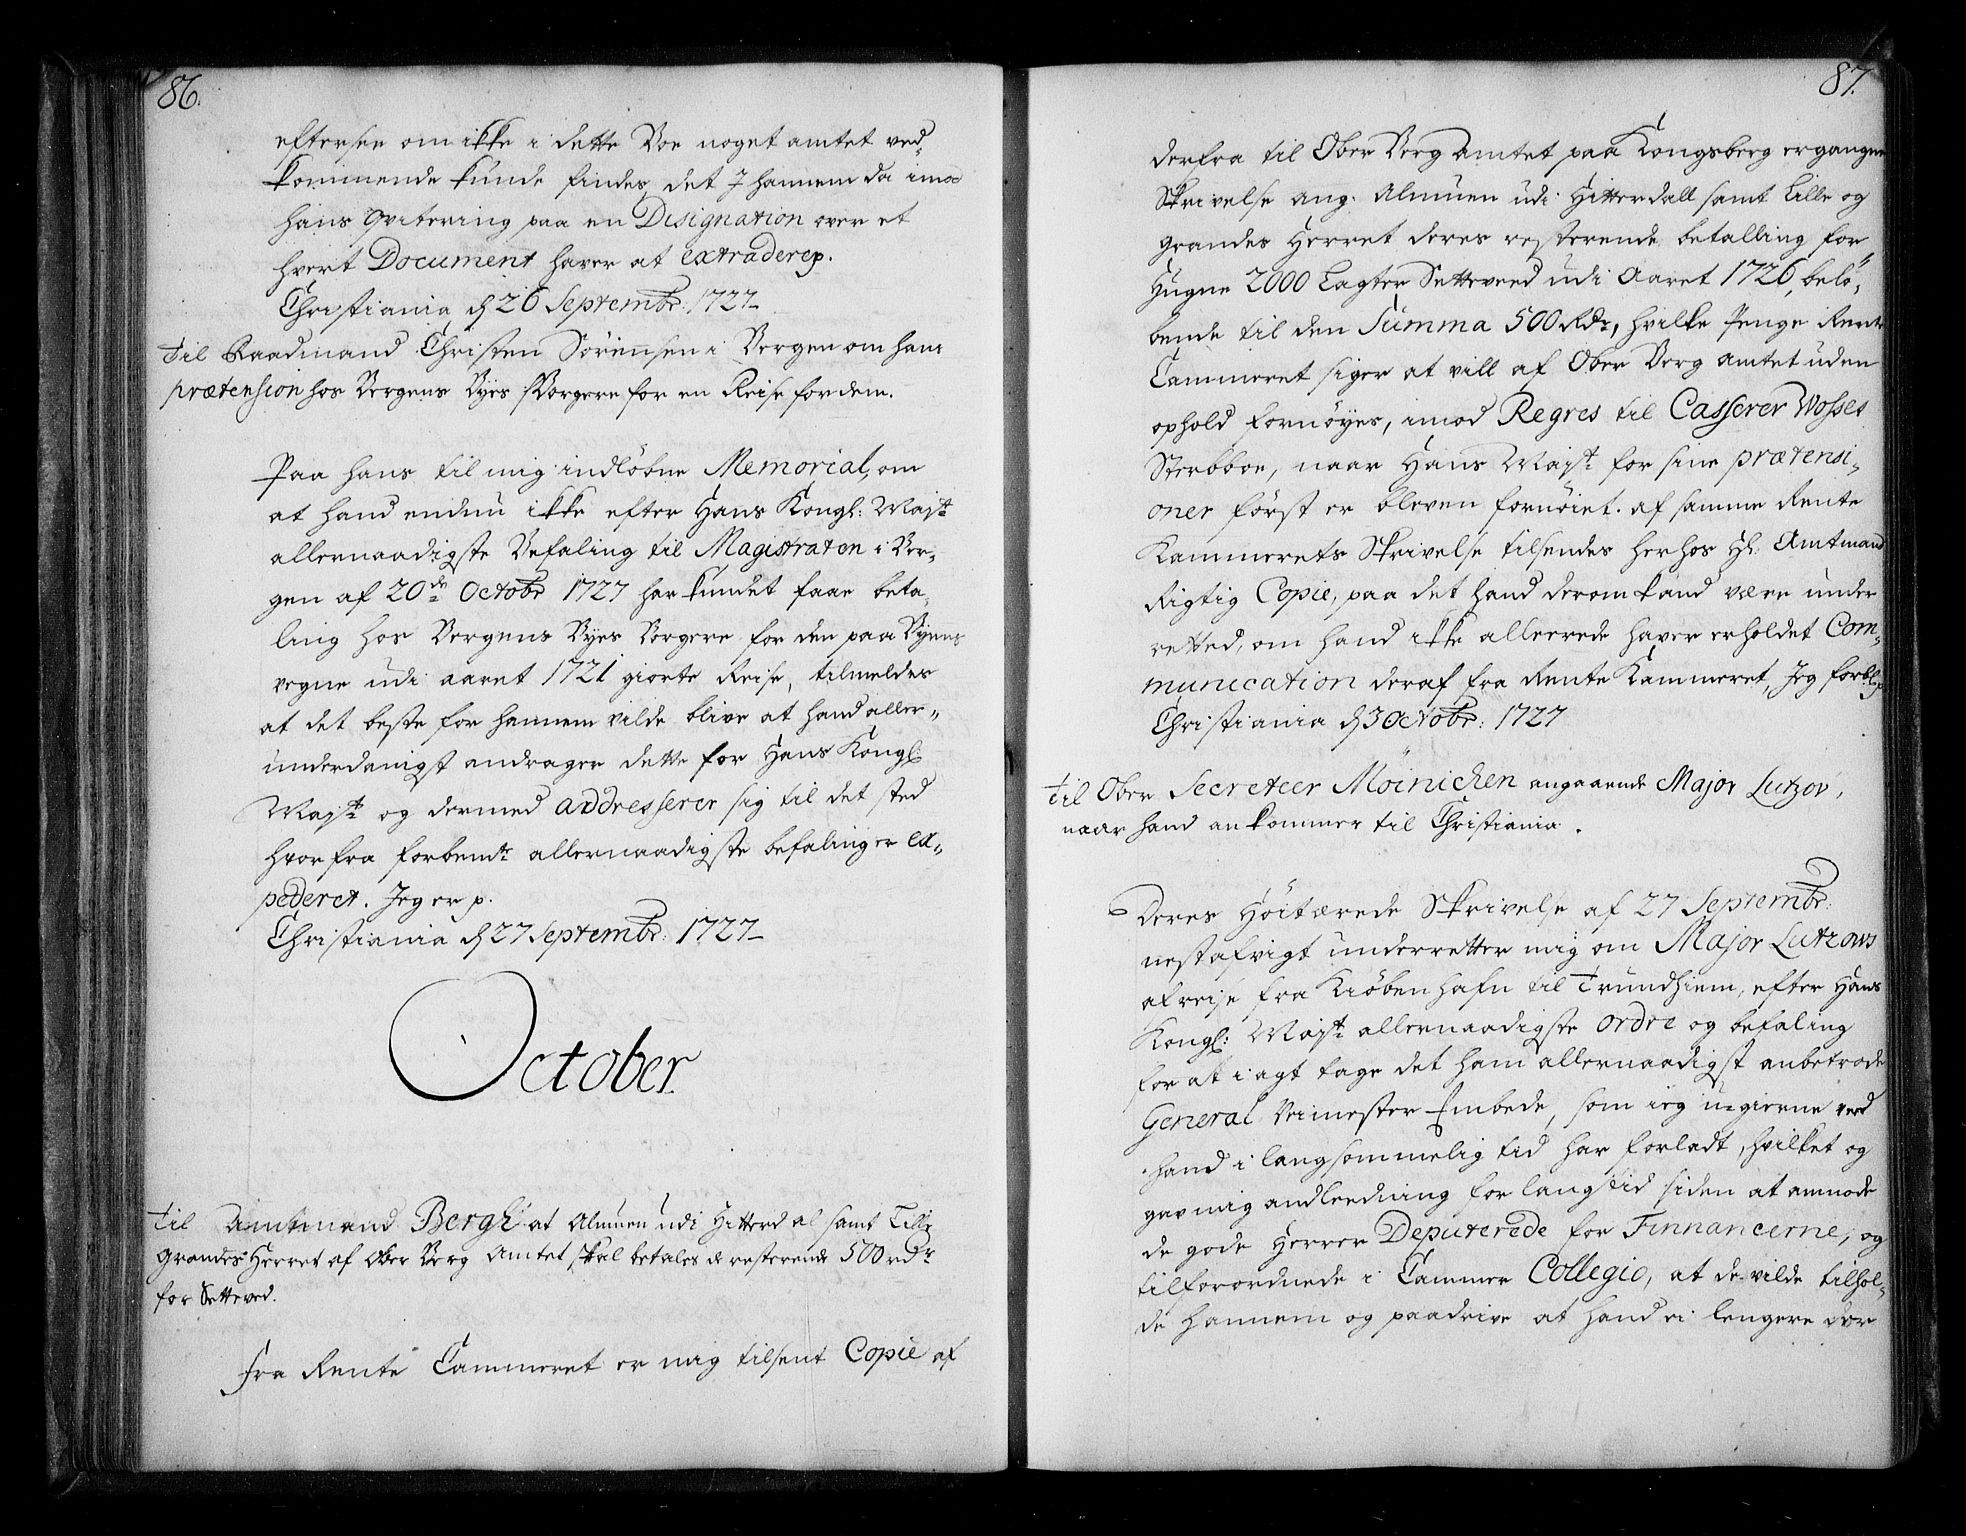 86.
eftersee om ikke i dette Boe noget amtet ved„
kommende kunde findes, det I hannem da imod
hans qvitering paa en Designation over et
hvert Document haver at extradere p.
Christiania d 26 Septembr: 1727
Til Raadmand Christen Sörennsen i Bergen om hans
prætension hos Bergens Byes Borgere for en Reise for dem.
Paa hans til mig indløbne Memorial, om
at hand endnu ikke efter Hans Kongl: Majt:
allernaadigste Befaling til Magistraten i Ber„
gen af 20de Octobr 1727 har kundet faae beta„
ling hos Bergens Byes Borgere for den paa Byens
vegne udi aaret 1721 giorte Reise, tilmeldes
at det beste for hannem vilde blive at hand aller„
underdanigst andrager dette for Hans Kongl:
Majt: og dermed addresserer sig til det sted
hvorfra forbemte allernaadigste befaling er ex„
pederet. Jeg er p.
Christiania d 27 Septembr: 1727
October.
Til Amtmand Bergh at Almuen udi Hitterdal samt Lille
Grandes Herret af Ober Berg Amtet skal betales de resterende 500 rdr
for Setteved.
Fra Rente Cammeret er mig tilsent Copie af
87.
derfra til Ober Berg Amtet paa Kongsberg ergangne
Skrivelse ang. Almuen udi Hitterdall samt Lille og
Grandes Herret deres resterende betalling for
Hugne 2000 Lagter Setteveed udi Aaret 1726, belö„
bende til den Summa 500 Rdr, hvilke Penge Rente
Cammeret siger at vill af Ober Berg Amtet uden
ophold fornöyes, imod Regres til Casserer Wosses
Sterbboe, naar Hans Majt: for sine prætensi„
oner först er bleven fornöiet. af samme Rente
Kammerets Skrivelse tilsendes herhos Hl: Amtmand
Rigtig Copie, paa det hand derom kand være under
retted, om hand ikke allerede haver erholdet Com„
munication deraf fra Rente Kammeret, Jeg forbl: p
Christiania d 3 Octobr: 1727
Til Ober Secreteer Möinichen angaaende Major Lutzov,
naar hand ankommer til Christiania.
Deres Höitærede Skrivelse af 27 Septembr:
nestafvigt underretter mig om Major Lutzows
afreise fra Kiöbenhafn til Trundhiem, efter Hans
Kongl: Majt: allernaadigste ordre og befaling
for at i agt tage det ham allernaadigst anbetrode
General Veimester Embede, som jeg u-gierne veed
hand i langsommelig tid har forladt, hvilket og
gav mig andleedning for lang tid siden at anmode
de gode Herrer Deputerede for Finnancerne, og
tilforordnede i Cammer Collegio, at de vilde tilhol„
de hannem og paadrive at hand ei lengere der